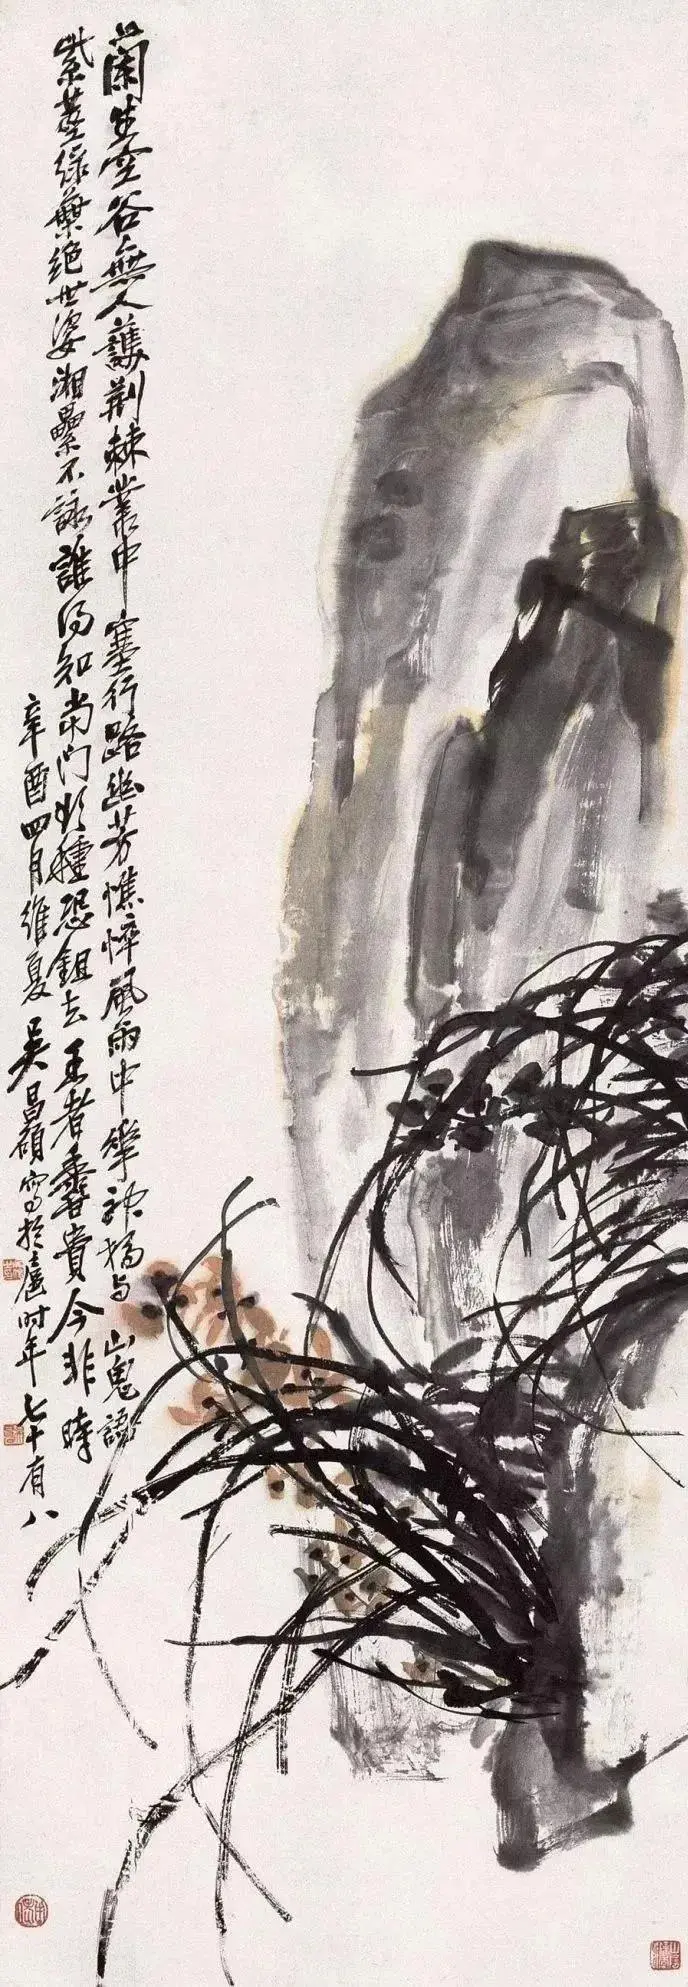 蘭生空谷無人護荆棘叢中塞行路幽芳憔悴風雨中華神揚与山鬼語
紫莖綠葉絕世姿湘纍不詠誰得知當門欲種恐鉏去王者香貴今非時
辛酉四月維夏吳昌碩寫於滬時年七十有八